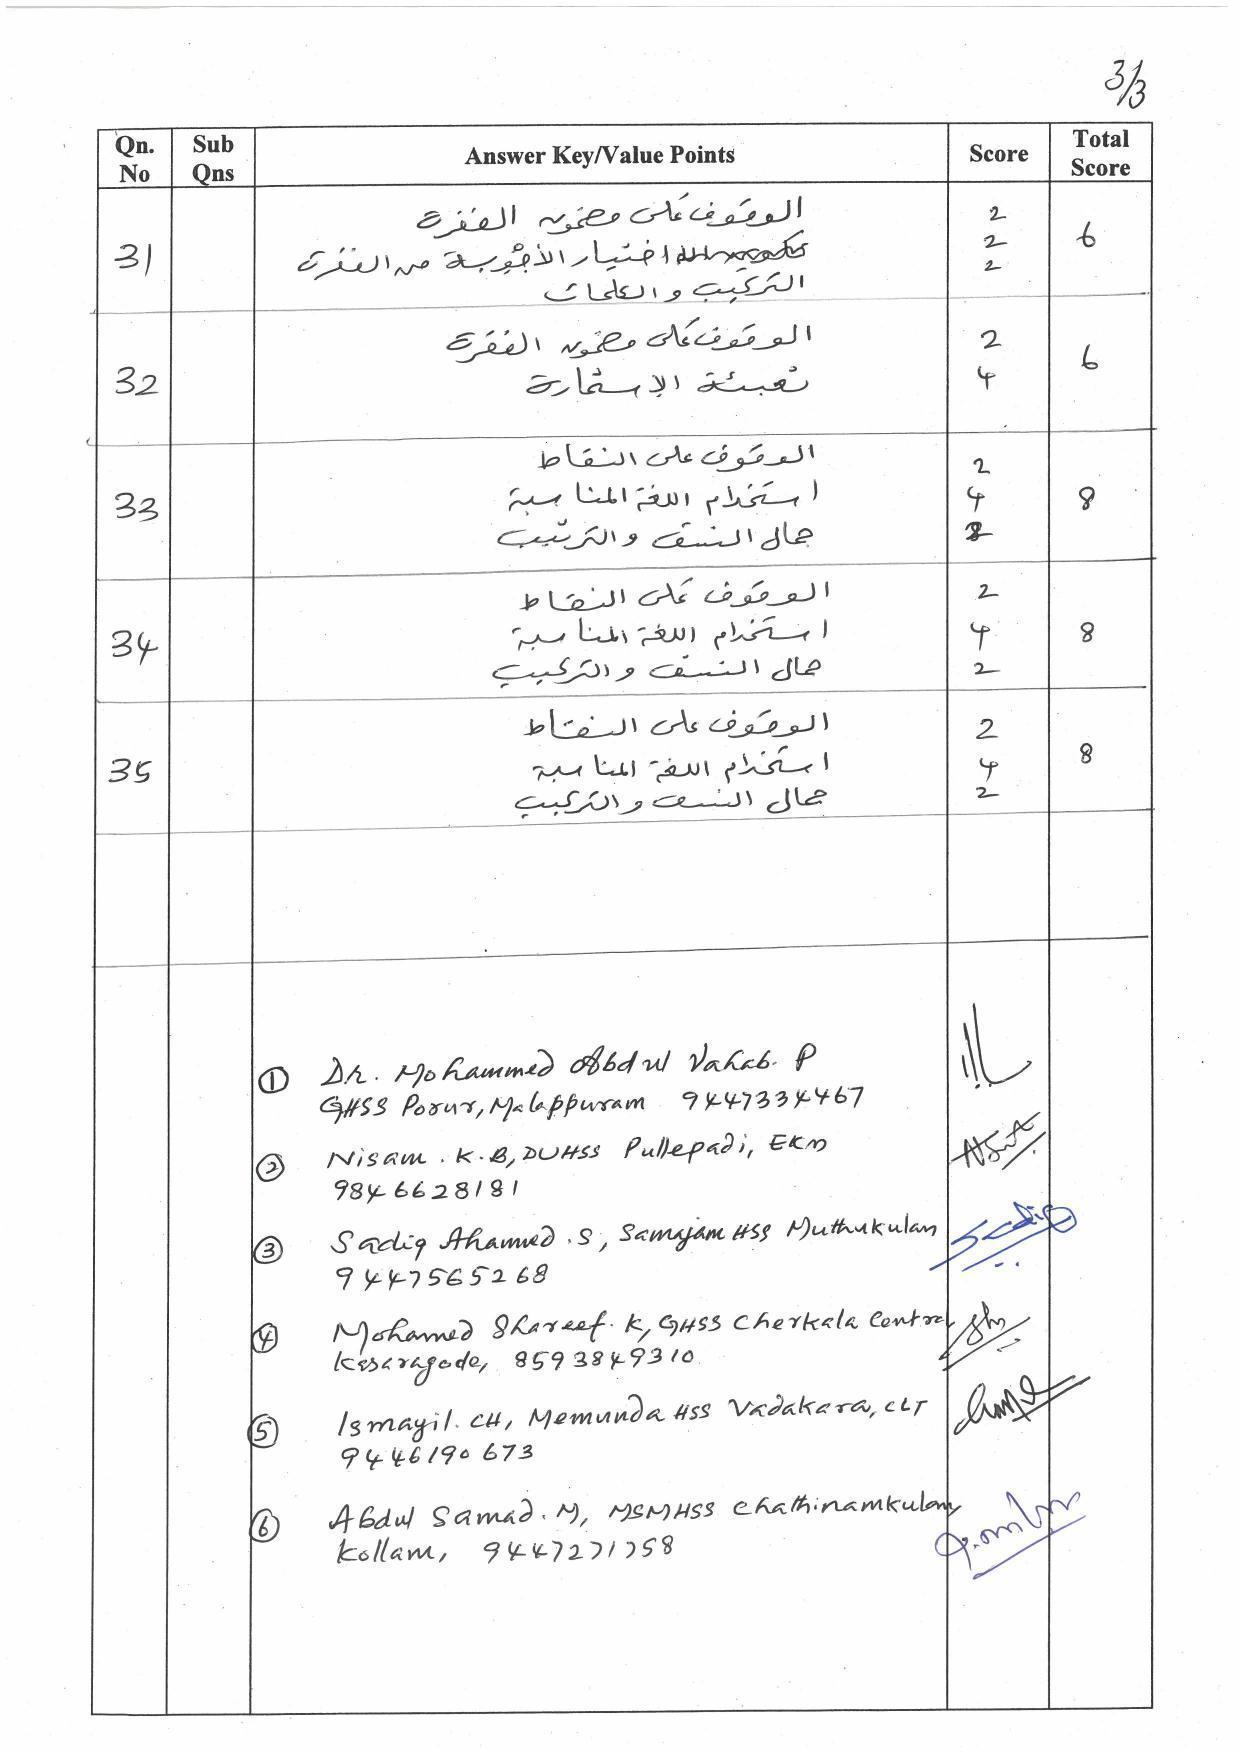 3/3
Qn. No | Sub Qns | Answer Key/Value Points | Score | Total Score
31 | الوقوف على مضمون الفقرة | 2 | 6
اختيار الأجوبة من الفقرة | 2
التركيب والكلمات | 2
32 | الوقوف على مضمون الفقرة | 2 | 6
تعبئة الإستمارة | 4
33 | الوقوف على النقاط | 2 | 8
استخدام اللغة المناسبة | 4
جمال النسق والترتيب | 2
34 | الوقوف على النقاط | 2 | 8
استخدام اللغة المناسبة | 4
جمال النسق والتركيب | 2
35 | الوقوف على النقاط | 2 | 8
استخدام اللغة المناسبة | 4
جمال النسق والتركيب | 2
① Dr. Mohammed Abdul Vahab. P
GHSS Porur, Malappuram 9447334467
② Nisam . K. B, DUHSS Pullepadi, EKM
9846628181
③ Sadiq Ahammed .S, Samajam HSS Muthukulam
9447565268
④ Mohamed Shareef. K, GHSS Cherkala Central
Kasaragode, 8593849310
⑤ Ismayil. CH, Memunda HSS Vadakara, CLT
9446190673
⑥ Abdul Samad. M, MSMHSS Chathinamkulam
Kollam,